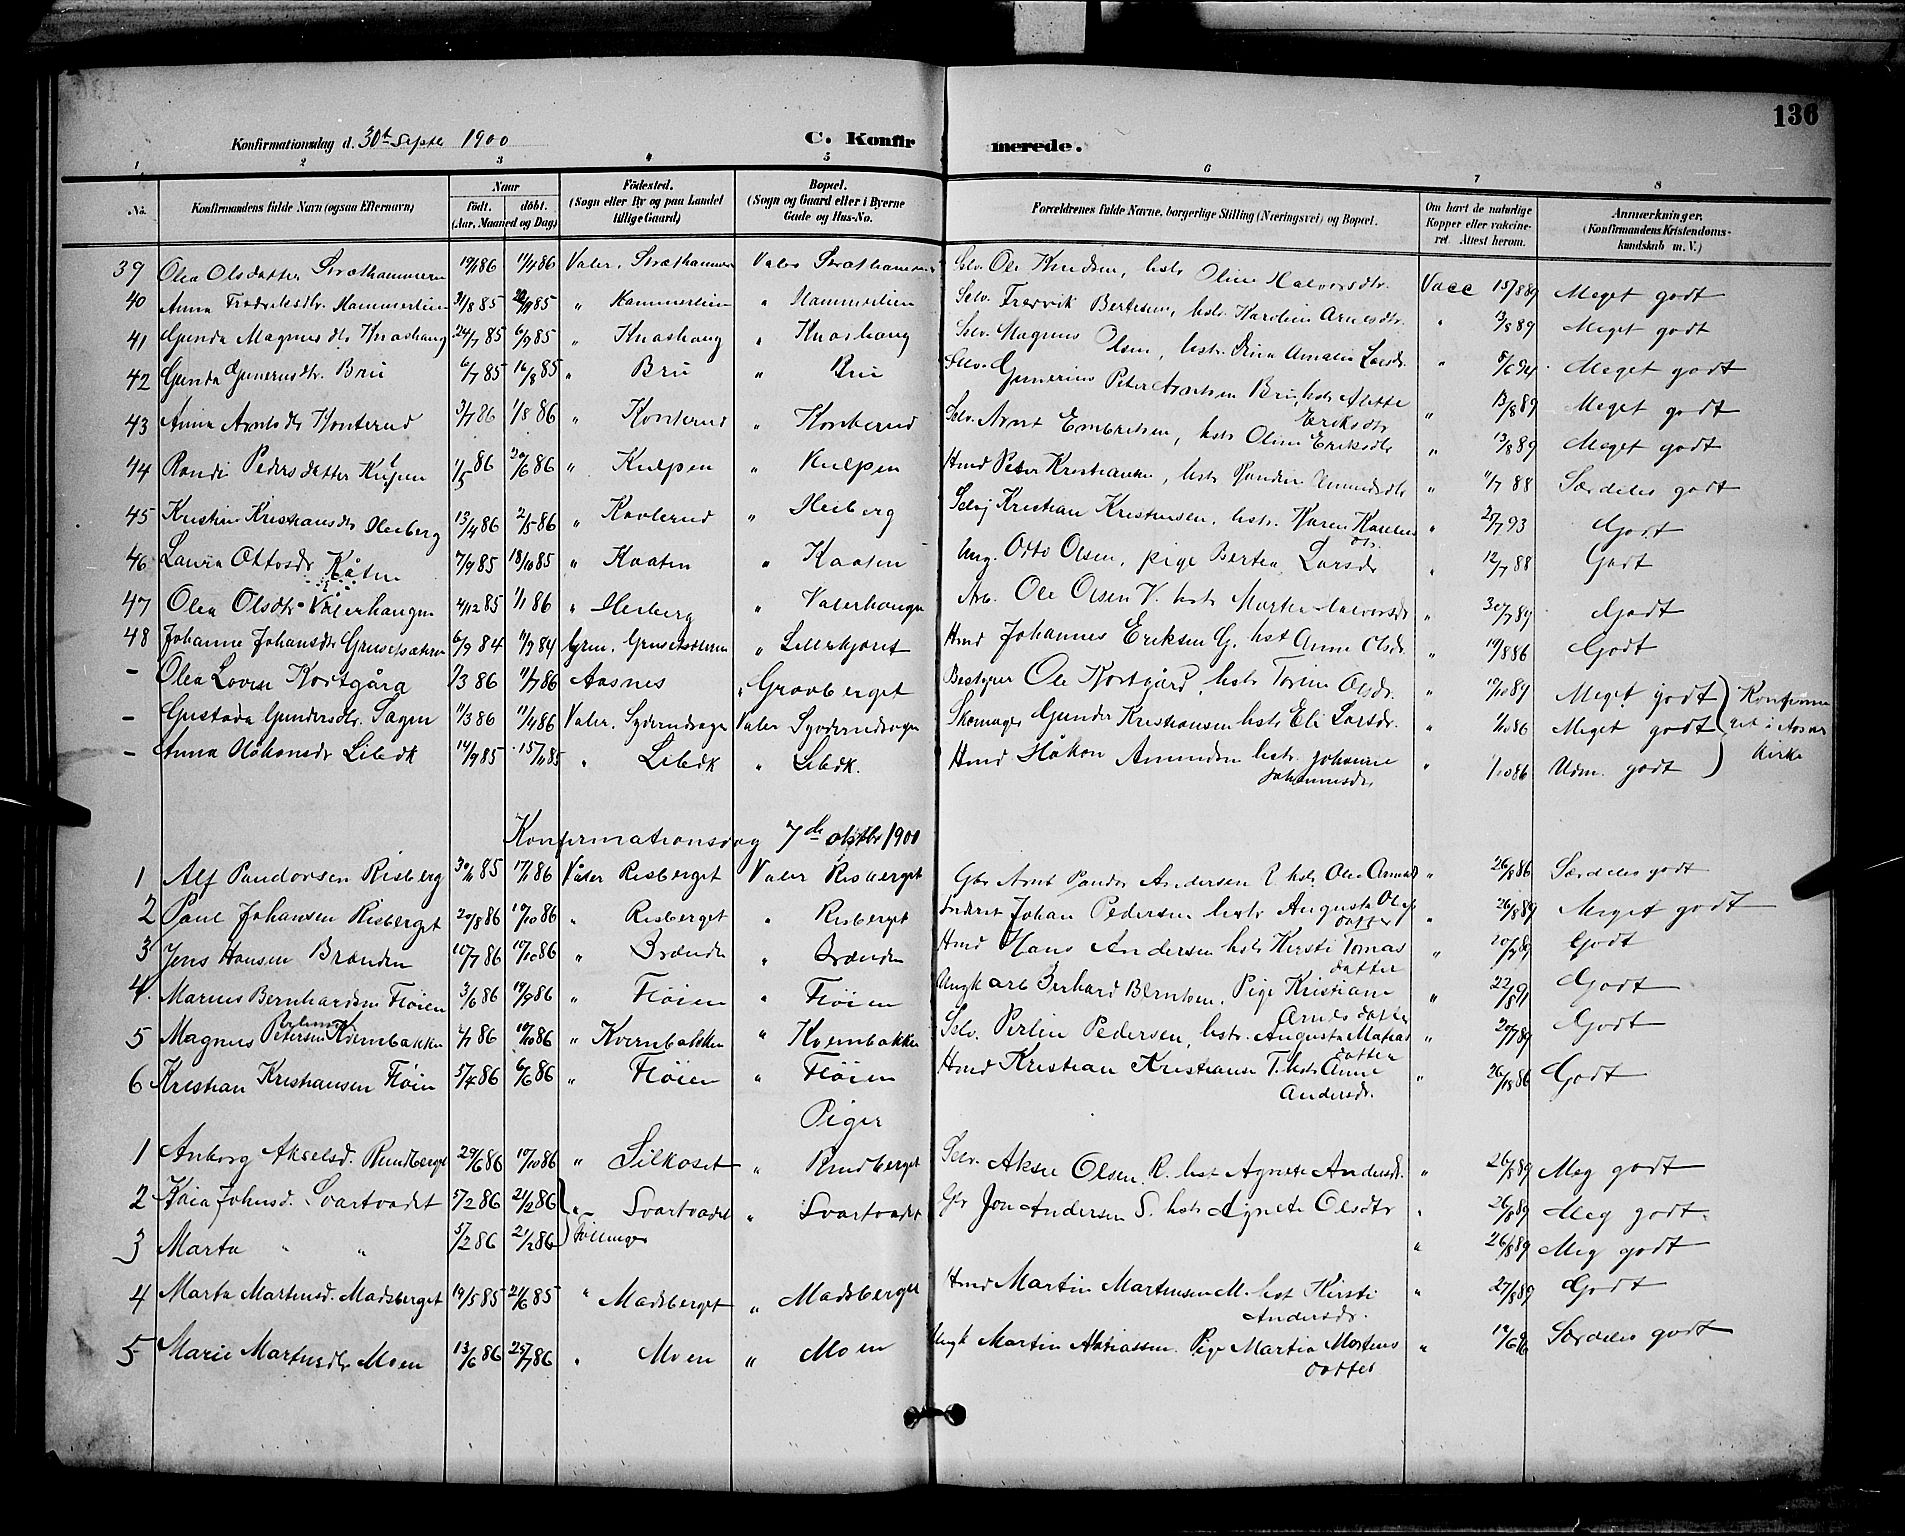 136
Konfirmationsdag d. 30te Septe 1900 C. Konfirmerede.
1 2 3 4 5 6 7 8
No. Konfirmandens fulde Navn (ogsaa Efternavn) Naar födt. döbt. (Aar, Maaned og Dag) Födested. (Sogn eller By og paa Landet tillige Gaard) Bopæl. (Sogn og Gaard eller i Byerne Gade og Hus-No. Forældrenes fulde Navne, borgerlige Stilling (Næringsvei) og Bopæl. Om havt de naturlige Kopper eller vakcineret Attest herom. Anmærkninger. (Konfirmandens Kristendomskundskab m. V.)
39 Olea Olsdatter Stræthammeren 11/4 86 Valer, Stræthammeren Valer Selv. Ole Knudsen, hstr Oline Halvorsdtr. Vacc 15/8 89 Meget godt
40 Anna Fredriksdtr. Hammerlien 31/8 85 " Hammerlien " Hammerlien Selv. Fredrik Bertesen, hstr. Karoline Arnesdtr. " 13/8 89 Meget godt
41 Gunda Magnusdtr Knashaug 24/7 85 6/9 85 " Knashaug " Knashaug Selv. Magnus Olsen, hstr. Amalie Larsdr. " 8/6 94 Meget godt
42 Gunda Gunerusdtr. Bru 6/7 85 16/8 85 " Bru " Bru Selv. Gunerius Peter Arntsen Bru, hstr Alette Eriksdtr " 13/8 89 Meget godt
43 Anna Arntsdtr Honterud 3/7 86 1/8 86 " Konterud " Konterud Selv. Arnt Embretsen, hstr Oline Eriksdtr " 13/8 89 Meget godt
44 Randi Pedersdatter Kulpen 1/5 86 20/6 86 " Kulpen " Kulpen Hmd Peter Kristiansen, hstr Amundsdtr " 11/7 88 Særdeles godt
45 Kristine Kristiansdtr Heiberg 13/4 86 2/5 86 " Kavlerud " Heiberg Kristian Kristensen, hstr. Karen " 27/7 93 Godt
46 Laura Ottosdr Kåten 7/9 85 18/10 85 " Kaaten " Kaaten Ung. Otto Olsen, pige Bertea Larsdr " 12/7 88 Godt
47 Olea Olsdtr Vålerhaugen 4/12 85 1/1 86 " Heiberg " Valerhaugen Arb. Ole Olsen V. hstr Marthe Halvorsdr " 30/7 89 Godt
48 Johanne Johansdr Grusetsæteren 6/9 84 Grue, Grusetsæteren " Hmd Johannes Eriksen G. hst Anne Olsdr. " 19/8 86 Godt
- Olea Lovise Kortgård 1/3 86 11/7 86 Aasnes " Gravberget Bestyrer Ole Kortgård, hstr Torine Olsdr. " 19/10 89 Meget godt
- Gustava Gundersdtr. Sagen 11/3 86 11/4 86 Valer, Syderudsagen Valer Skomager Gunder Kristiansen hstr Eli Larsdr. " 1/10 86 Meget godt
Konfirmeret i Aasnes Kirke
- Anna Håkonsdr Libæk 14/9 85 15/11 85 " Libæk " Libæk. Hmd Håkon Amundsen hstr. Johanne Johannesdr " 1/10 86 Udm. godt
Konfirmationsdag 7de oktbr 1900
1 Alf Pandorsen Risberg 30/11 85 17/1 86 Våler Risberget Valer Risberget Gbr Arnt Pandor Andersen R. hstr. " 26/8 86 Særdeles godt
2 Paul Johansen Risberget 29/8 86 10/10 86 " Risberget " Risberget Johan Pedersen hstr Augusta Olsdatter " 26/8 89 Meget godt
3 Jens Hansen Brænden 10/7 86 10/10 86 " Brænden " Brænden Hmd Hans Andersen hstr Kirsti Tomasdatter " Godt
4. Marius Bernhardsen Fløien 3/6 86 19/9 86 " Fløien " Fløien Ungk arb Berhard Berntsen. Pige Kristiane Arnesdatter " 22/8 91 Godt
5 Magnus Petersen Kvernbakken 10/10 86 " Kvernbakken " Kvernbakken Selv. Perlin Pedersen, hstr. Augusta Matiasdatter " 20/7 89 Godt
6 Kristian Kristiansen Fløien 5/4 86 6/6 86 " Fløien " Fløien Hmd Kristian Kristiansen F. hstr Anne Andersdr. " Godt
Piger
1 Anborg Akselsd. Rundberget 29/6 86 10/10 86 " Silkoset " Rundberget Selv. Aksel Olsen R. hst Agnete Andersdr. " 26/8 89 Meg godt
2 Kaia Johnsd. Svartvadet 5/2 86 21/2 86 " Svartvadet " Svartvadet Gbr Jon Andersen S. hstr Agnete Olsdtr " 26/8 89 Meg godt.
Tvillinger
3 Marta " " 5/2 86 21/2 86 " 26/8 89 Meg godt
4 Marta Martinsd. Madsberget 19/5 85 21/6 85 " Madsberget " Madsberget Hmd Martin Martinsen M. hst Kirsti Andersdr. " 27/8 89 Godt
5 Marie Martinsdtr Moen 13/6 86 25/7 86 " Moen " Moen Ungk Martin Matiassen. Pige Martia Mortensdatter " Særdeles godt